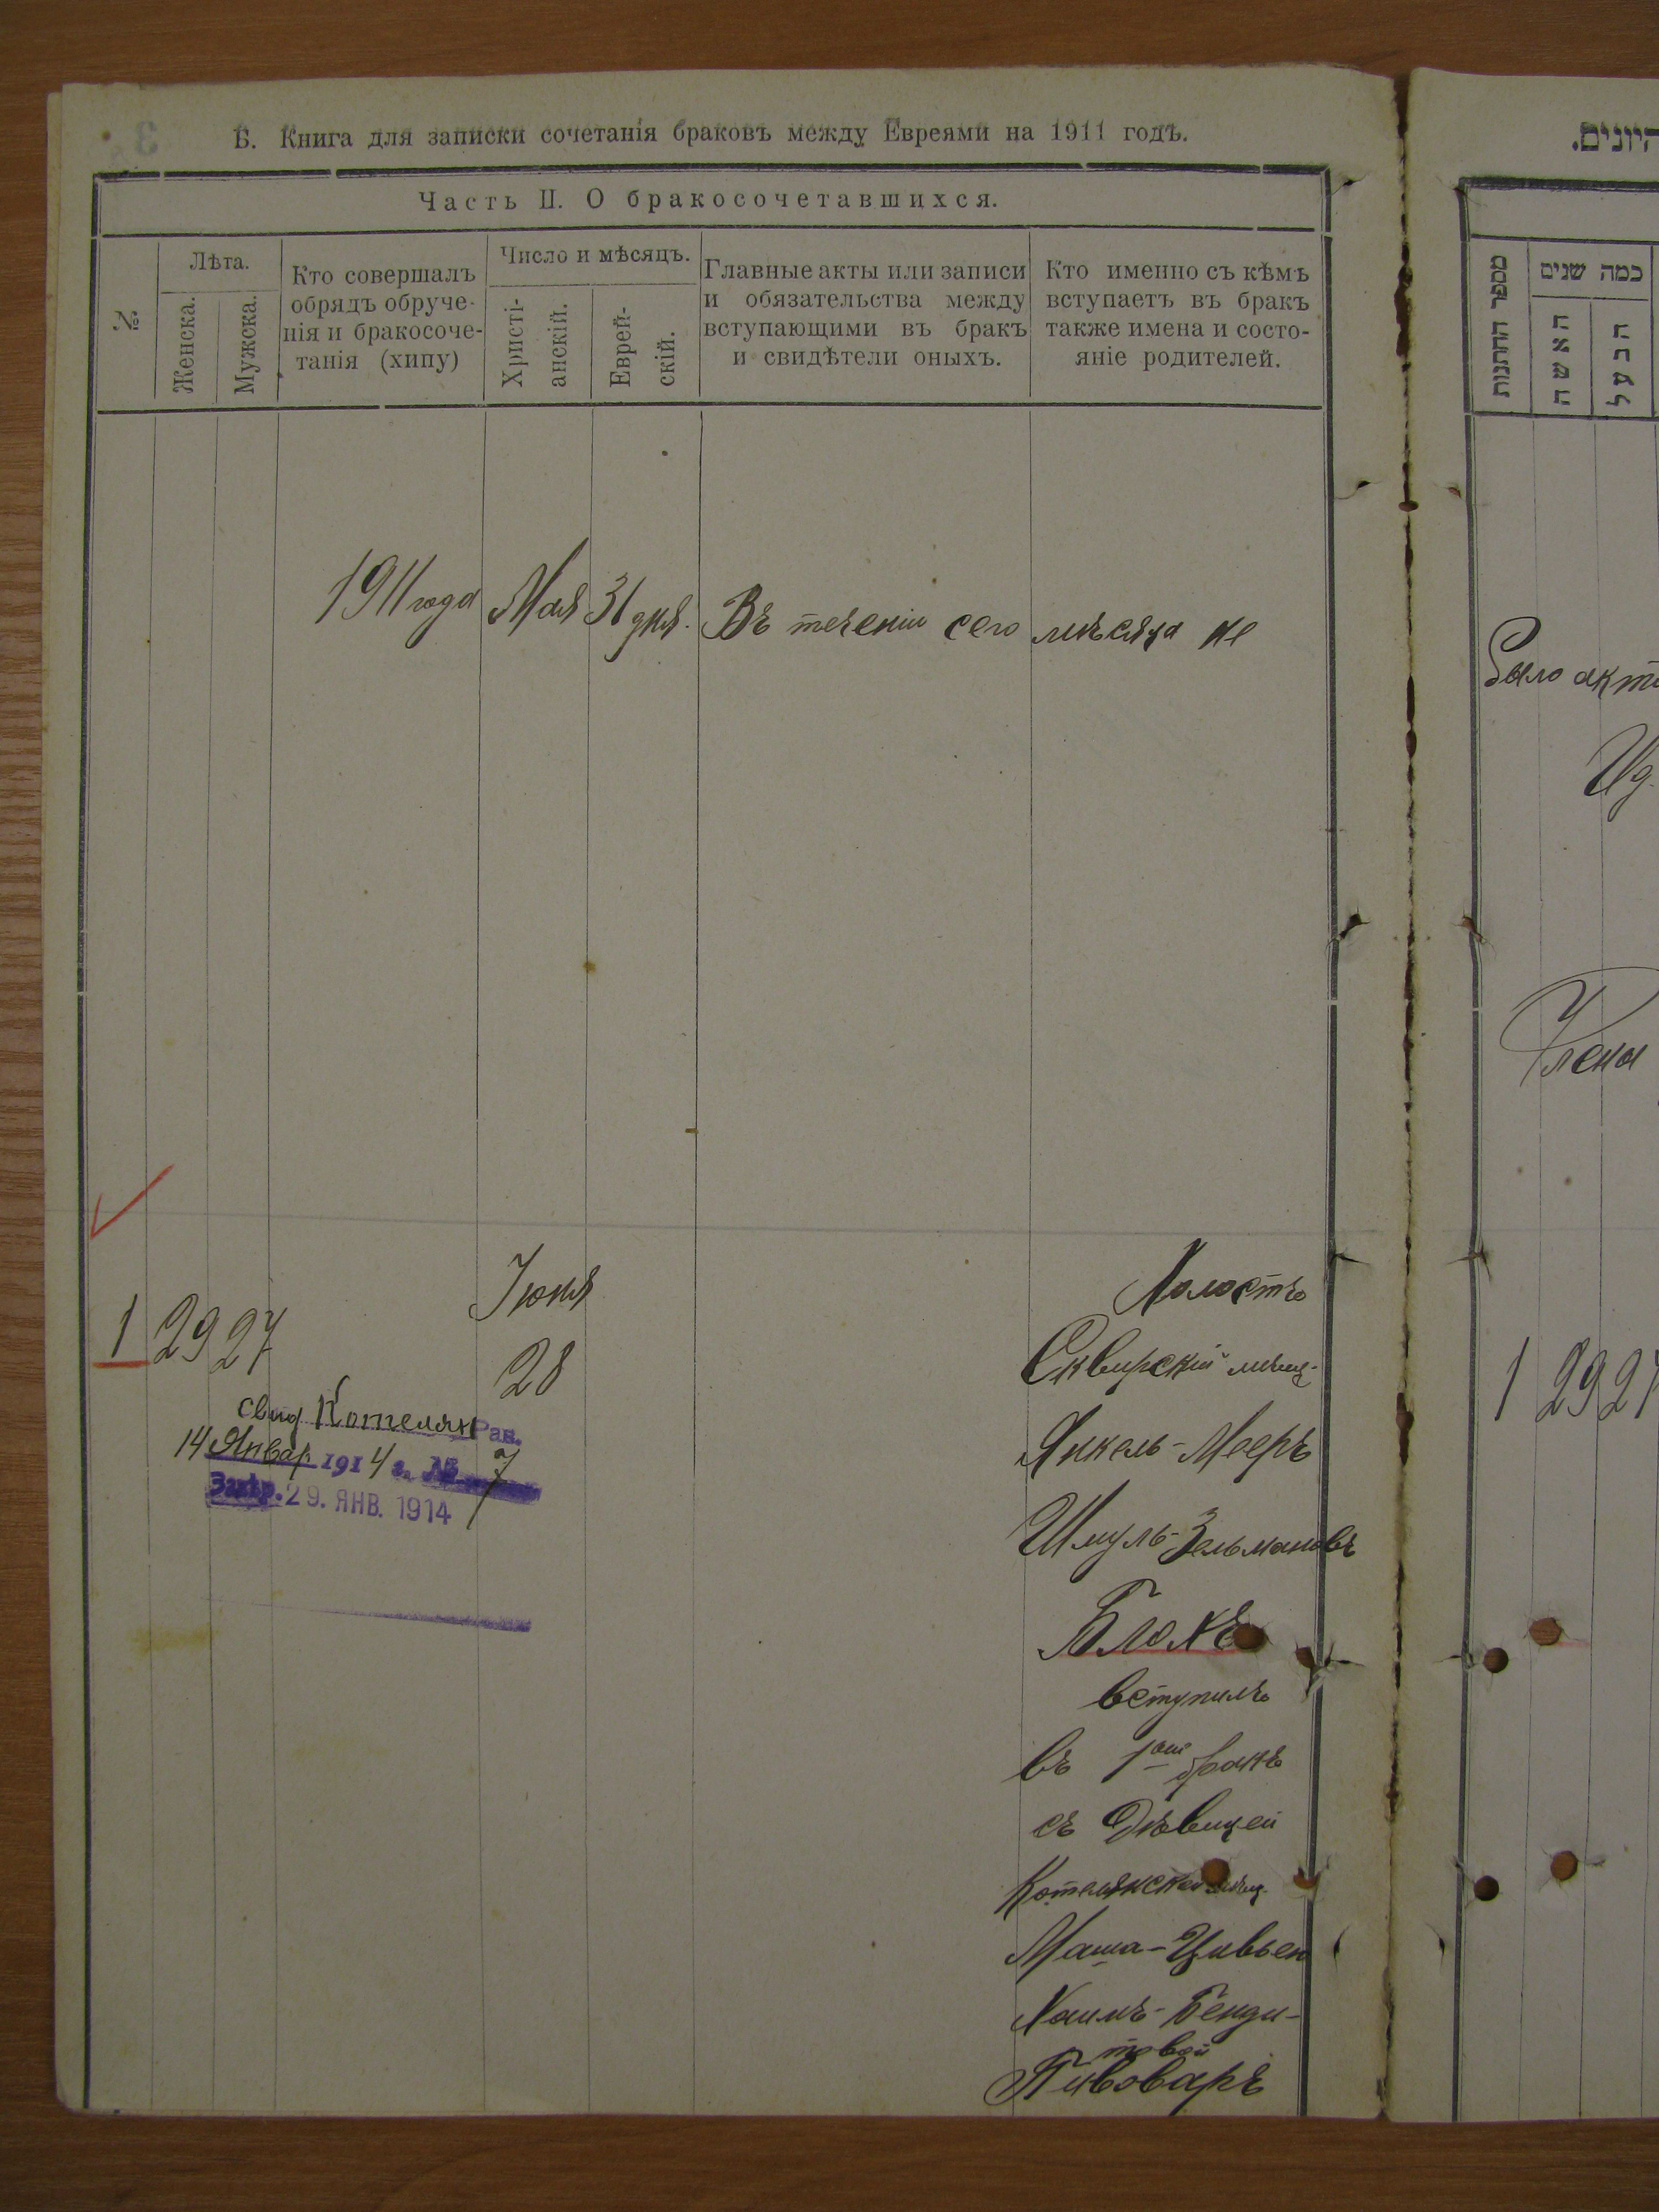 Б. Книга для записки сочетанія браковъ между Евреями на 1911 годъ.
Часть II. О бракосочетавшихся.
№
Лѣта.
Женска.
Мужска.
Кто совершалъ
обрядъ обруче-
нія и бракосоче-
танія (хипу)
Число и мѣсяцъ.
Христі-
анскій.
Еврей-
скій.
Главные акты или записи
и обязательства между
вступающими въ бракъ
и свидѣтели оныхъ.
Кто именно съ кѣмъ
вступаетъ въ бракъ
также имена и состо-
яніе родителей.
1911 года Мая 31 дня. Въ теченіи сего мѣсяца не
1 29 27
Іюня
28
свид Котелян Рав.
14 Январ 1914 г. № 7
29. ЯНВ. 1914
Холостъ
Сквирскій мѣщ.
Янкель-Мееръ
Шмуль-Зельмановъ
Блохъ
вступилъ
въ 1ый бракъ
съ Дѣвицей
Котелянской мѣщ.
Маша-Цивьей
Хаимъ-Бенди-
товой
Пивоваръ
היונים.
מספר החתונות
כמה שנים
האשה
הבעל
было акт
Ид.
Члены
1 29 27